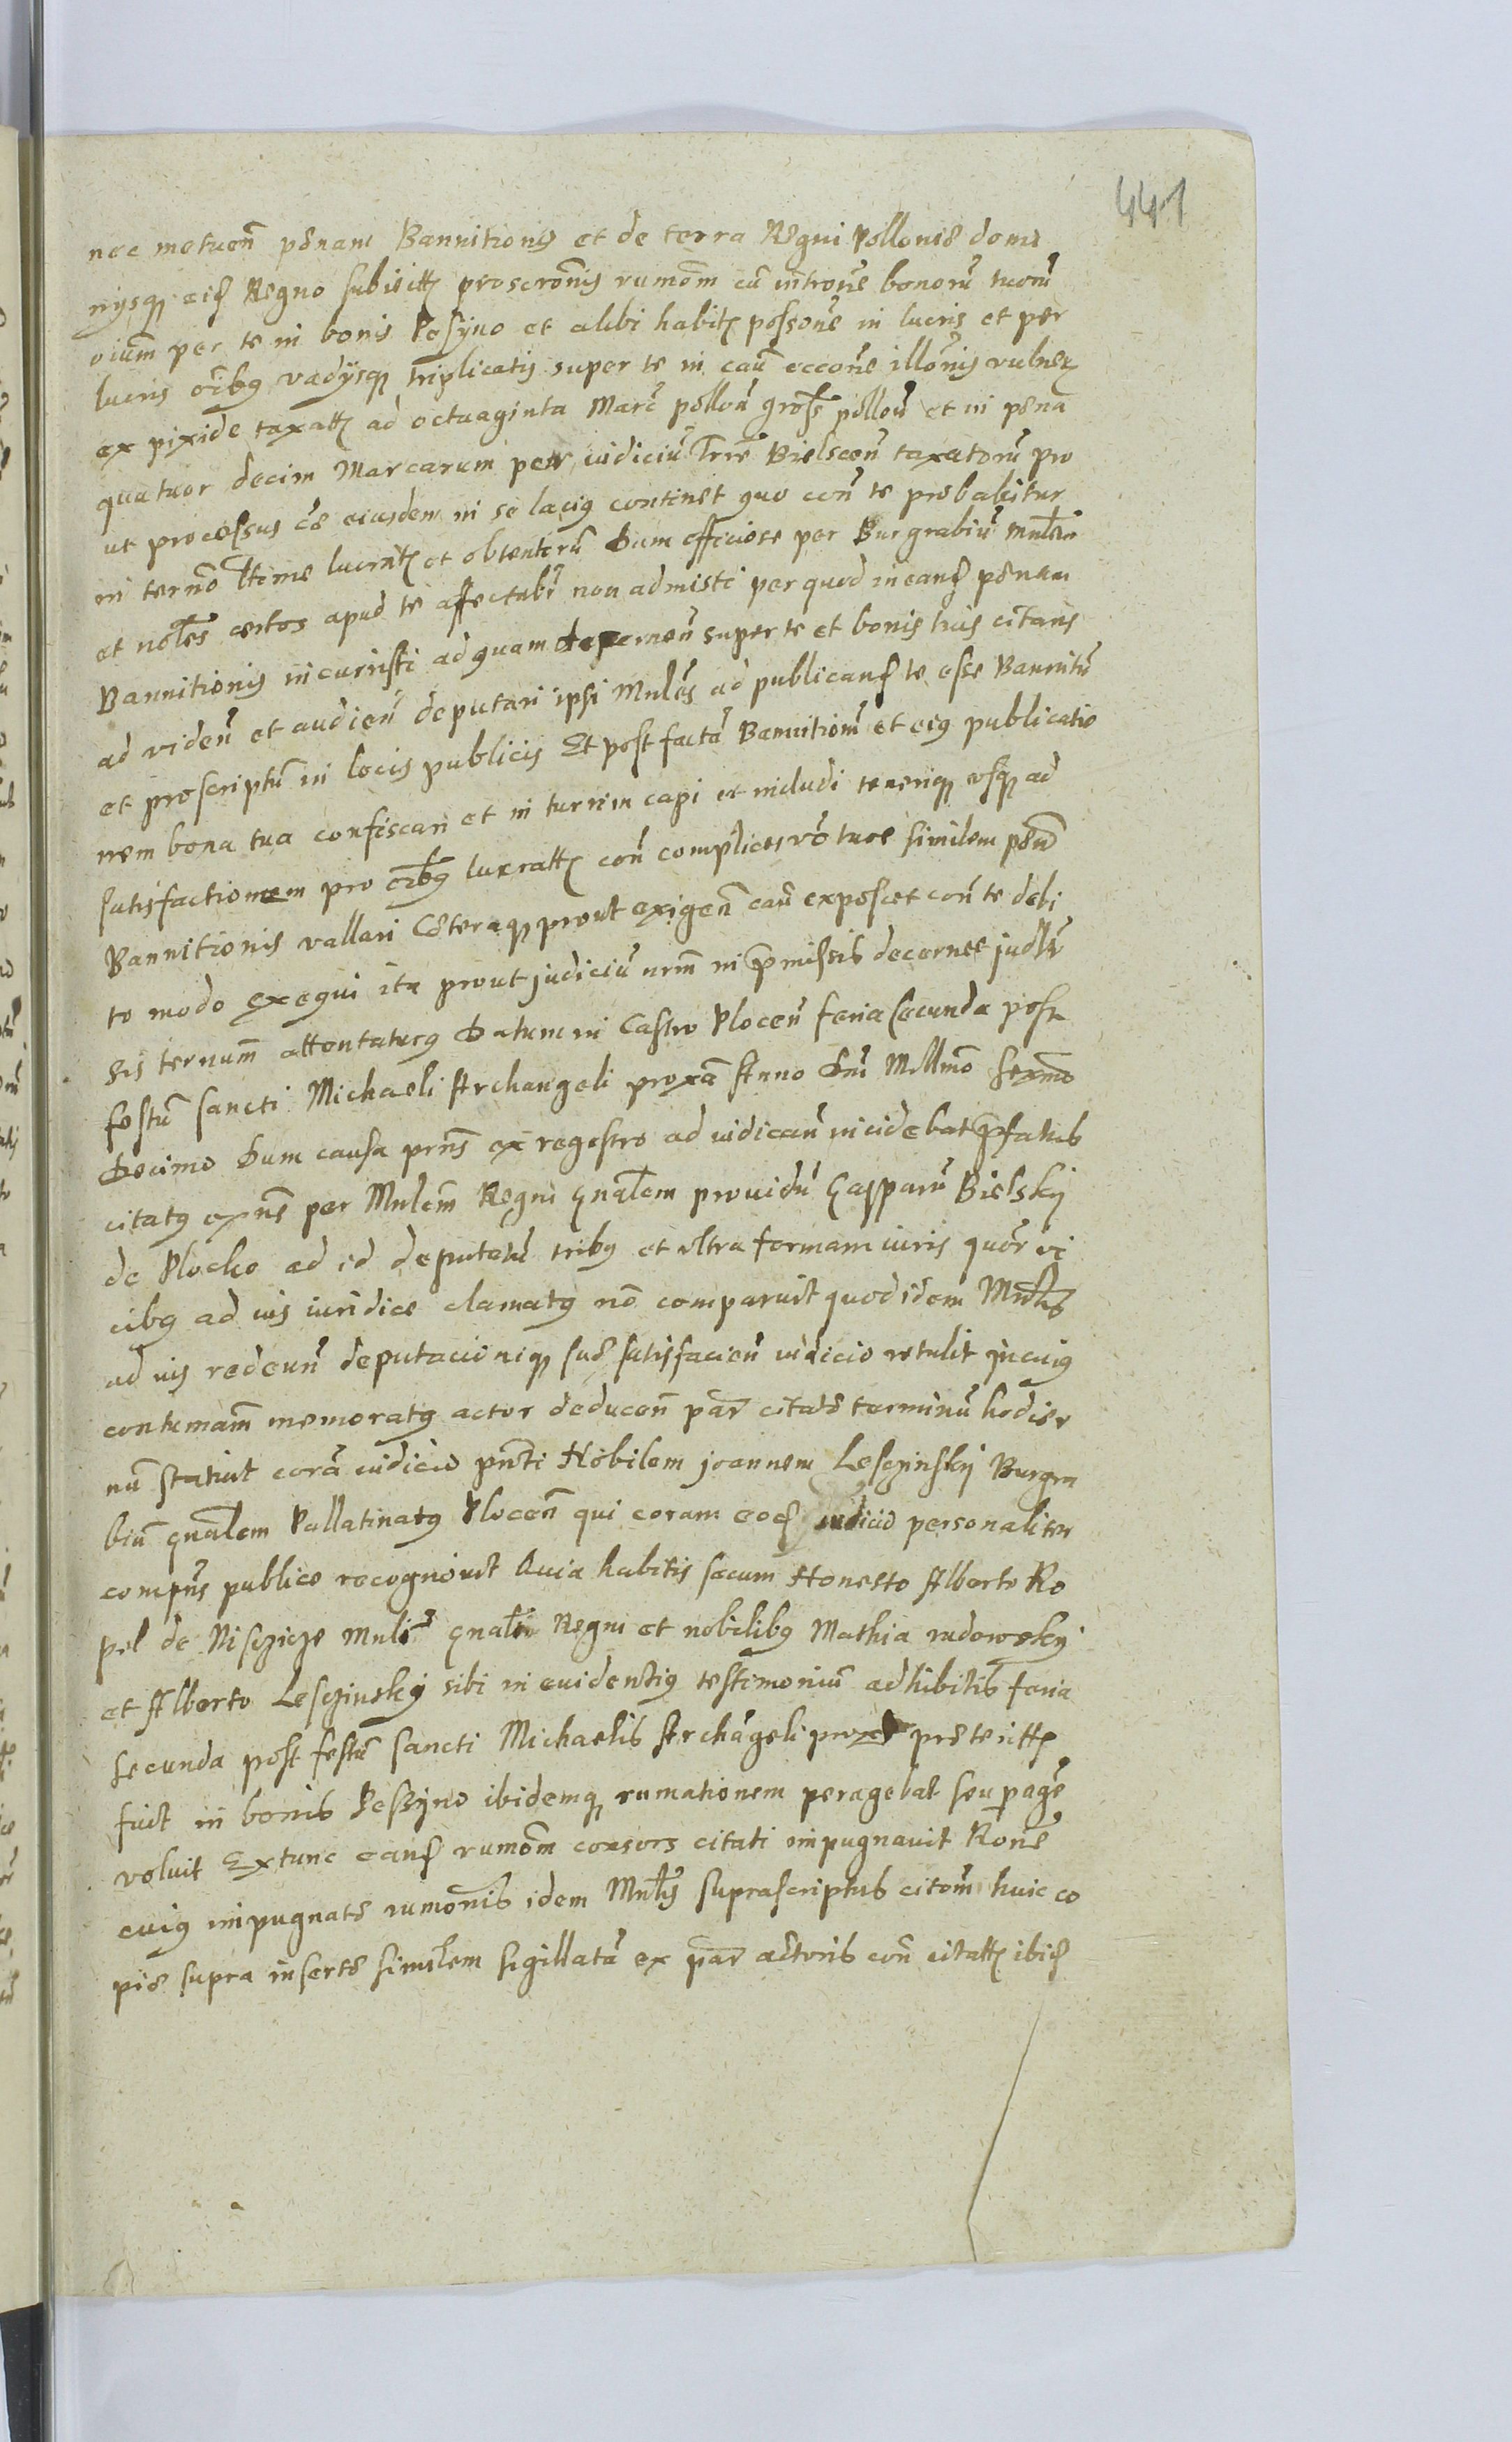 441
nec metuen̄ pęnam Bannitionis et de terra Regni Pollonię domi
nysq, eid Regno subiectt proscronis rumōm cū intronē bonorū tuorū
oium per te in bonis Pesyno et alibi habit possonē in lucris et per
lucris oībg vadysq, triplicatis super te in caū occonē illonis vulner
ex pixide taxatt ad octuaginta Marc pollon gross pollon et in pęna
quatuor decim Marcarum per iudiciū Trrē Bielscen taxatorū pro
ut processus cę eiusdem in se lacig continet quo con te probabitur
in termō ltime lucrat et obtentorū Dum officiose per Burgrabiū Mnlem
et nobles certos apud te affectabr non admisti per quod in eand pęnam
Bannitionis incuristi ad quam decernen super te et bonis tuis citaris
ad viden et audien deputari ipsi Mnles ad publicand te esse Bannitū
et proscriptū in locis publicis Et post factā Bannitionē et eig publicatio
nem bona tua confiscari et in turrim capi et includi teneriq, usq, ad
satisfactionem pro oibg lucratt con complices vō tuos similem pęna
Bannitionis vallari Cęteraq, prout exigen cau exposcet con te debi
to modo exequi ita prout judiciū nrm in pmissis decernet judlr
sis ternum attentaturg Datum in Castro Plocen feria secunda post
festū sancti Michaeli Archangeli proxā Anno Dni Millmo Sexmo
Decimo Dum causa prns ex regestro ad iudicanū incidebat pfatus
citatg exns per Mnlem Regni gnalem prouidū Casparū Bielsky
de Plocko ad id deputatū tribg et ultra formam iuris quor vi
cibg ad ius iuridice clamatg nō comparuit quod idem Mnlis
ad ius redeun deputacioniq, suę satisfacien iudicio retulit In cuig
contumam memoratg actor deducen par citatę terminū hodier
nū statuit corā iudicio pnti Nobilem Joannem Lesczinsky Burgra
biū gnalem Pallatinatg Plocen qui coram eod iudicio personaliter
compns publice recognouit Quia habitis secum Honesto Alberto Ko
pel de Nisczicze Mnlē gnali Regni et nobilibg Mathia rudowsky
et Alberto Lesczinsky sibi in euidentig testimonium adhibitis feria
secunda post festū sancti Michaelis Archāgeli proxē pręteritt
fuit in bonis Peszyno ibidemq, rumationem peragebat seu pagē
voluit Extunc eand rumōm consors citati impugnauit Ronē
cuig impugnatę rumonis idem Mnlis suprascriptus citom huic co
pię supra insertę similem sigillatā ex par actoris con citatt ibid